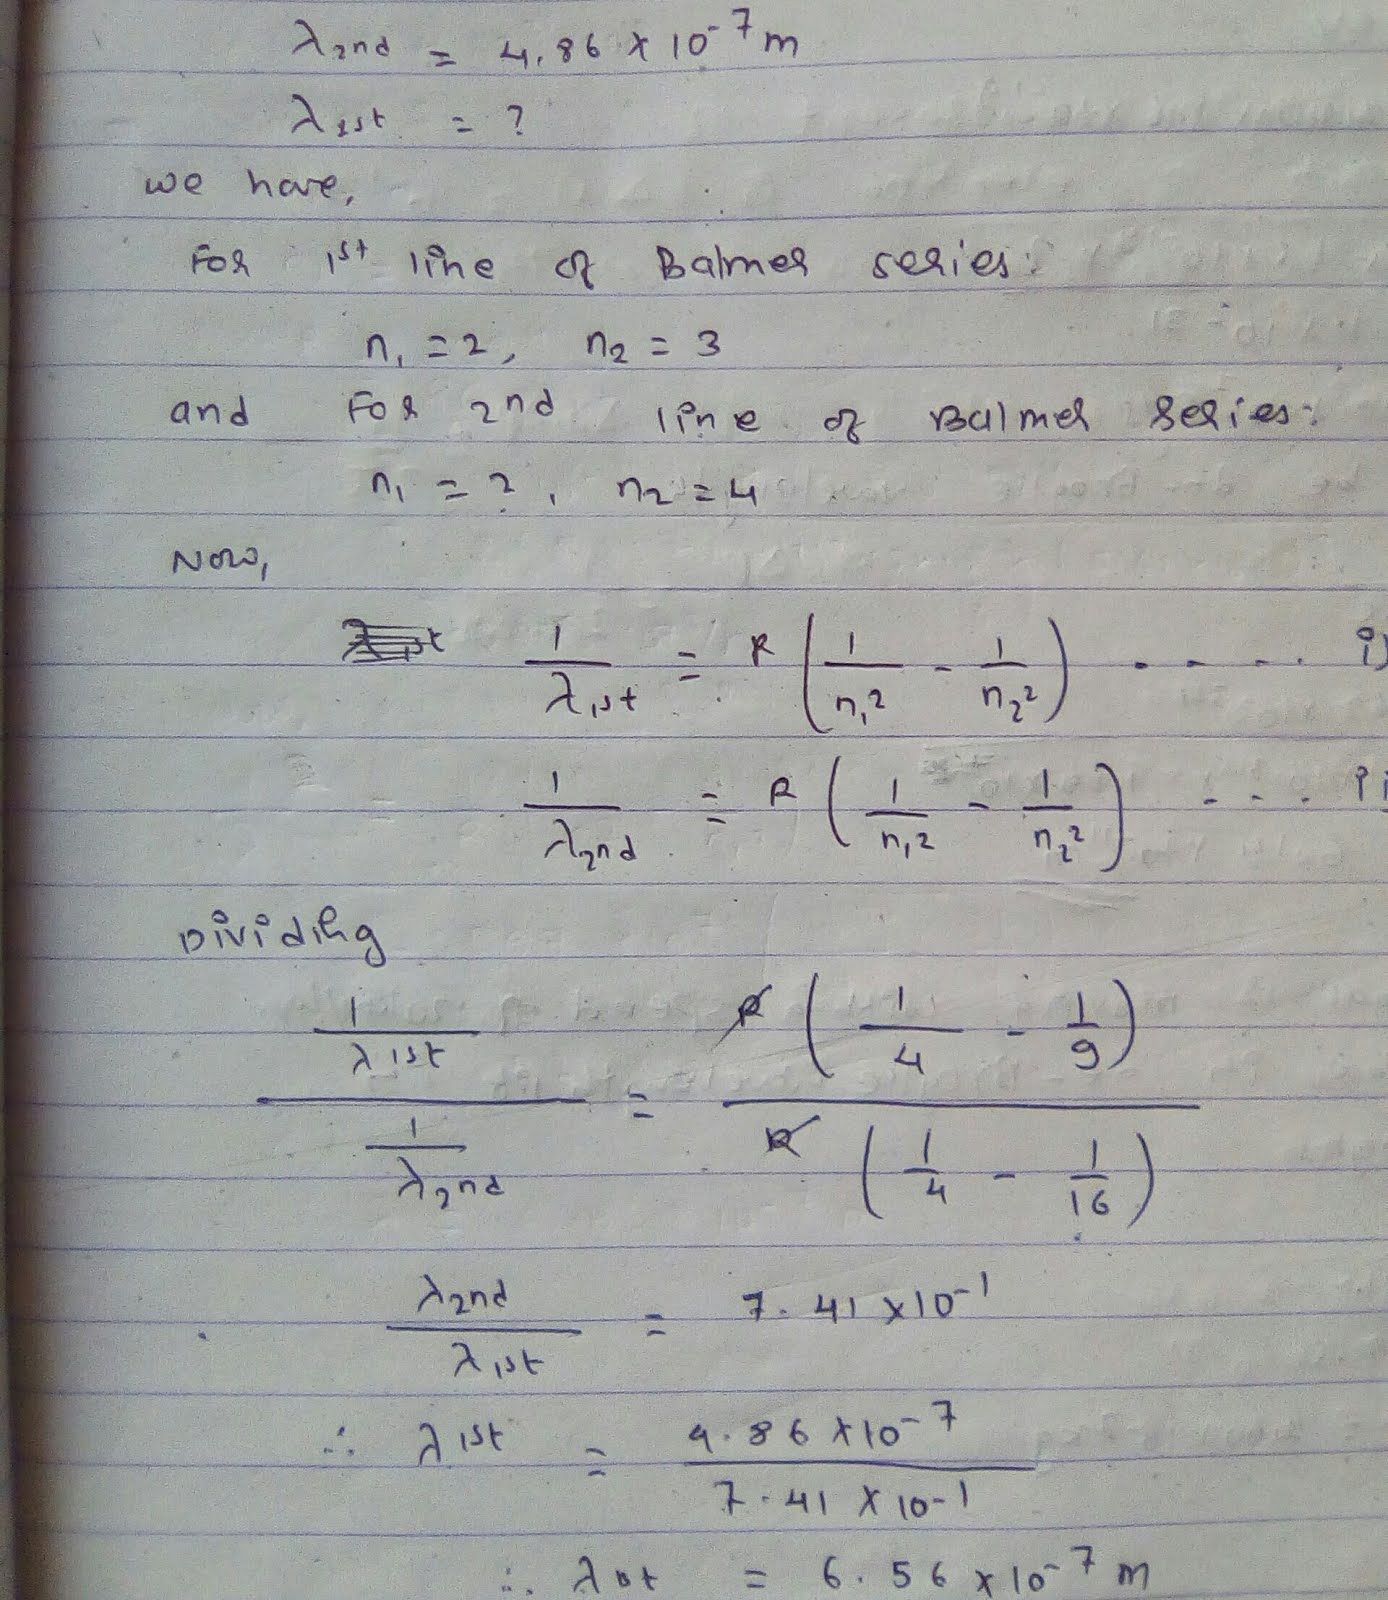 λ2nd = 4.86 × 10⁻⁷ m
λ1st = ?
we have,
For 1st line of Balmer series:
n₁ = 2, n₂ = 3
and For 2nd line of Balmer series:
n₁ = 2, n₂ = 4
Now,
1/λ1st = R (1/n₁² - 1/n₂²) - - - - i)
1/λ2nd = R (1/n₁² - 1/n₂²) - - - ii
Dividing
(1/λ1st) / (1/λ2nd) = R (1/4 - 1/9) / R (1/4 - 1/16)
λ2nd/λ1st = 7.41 × 10⁻¹
∴ λ1st = 4.86 × 10⁻⁷ / 7.41 × 10⁻¹
∴ λ1st = 6.56 × 10⁻⁷ m